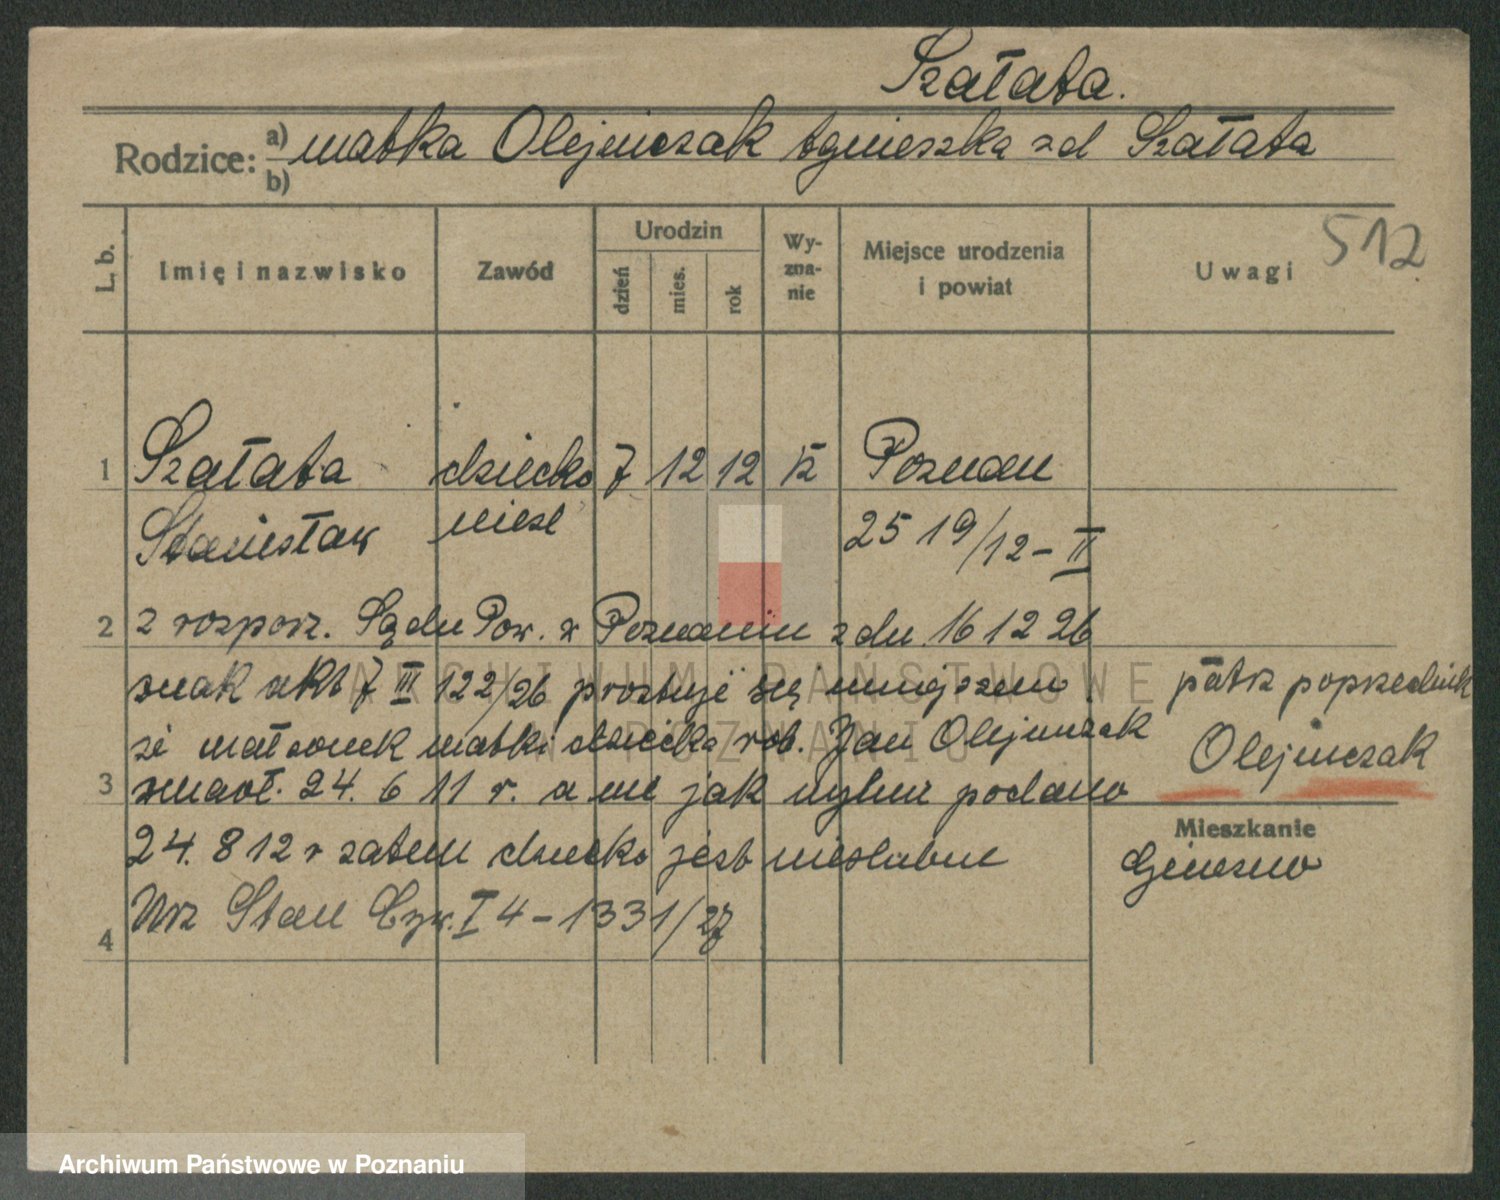 Szałata.
Rodzice: a) matka Olejniczak Agnieszka zd Szałata
b)
512
L. b. Imię i nazwisko Zawód Urodzin dzień mies. rok Wy-zna-nie Miejsce urodzenia i powiat Uwagi
1 Szałata dziecko 7 12 12 k Poznan
Stanisław niesl 25 19/12 - II
2 z rozporz. Sądu Pow. w Poznaniu z dn. 16 12 26
znak akt 7 III 122/26 prostuje się niniejszem
że małżonek matki dziecka rob. Jan Olejniczak
3 zmarł. 24. 6 11 r. a nie jak mylnie podano
24. 8 12 r zatem dziecko jest nieslubne
4 Urz Stan Cyw. I 4 - 1331/27
patrz poprzednik
Olejniczak
Mieszkanie
Gniezno
ARCHIWUM PAŃSTWOWE
W POZNANIU
Archiwum Państwowe w Poznaniu